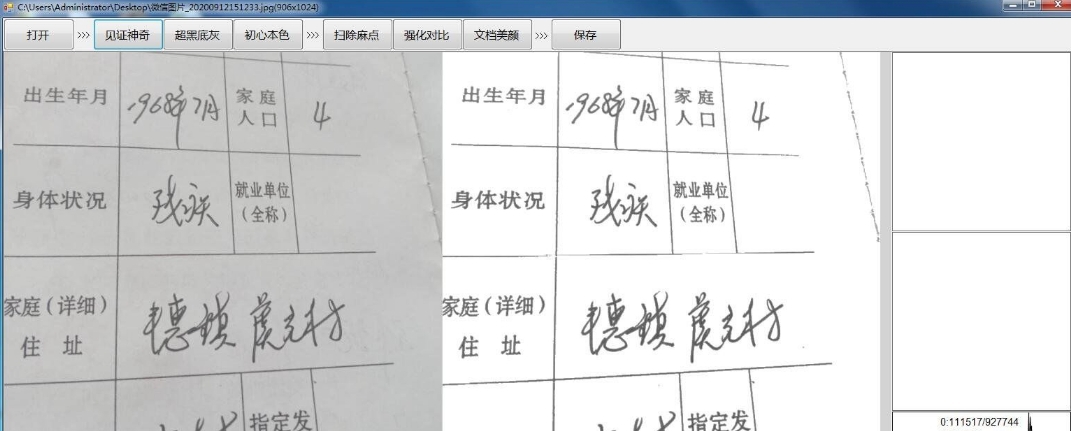 C:\Users\Administrator\Desktop\微信图片_20200912151233.jpg(906x1024)
打开 >>> 见证神奇 超黑底灰 初心本色 >>> 扫除麻点 强化对比 文档美颜 >>> 保存
出生年月 1968年7月 家庭人口 4
身体状况 残疾 就业单位(全称)
家庭(详细)住址
指定发
出生年月 1968年7月 家庭人口 4
身体状况 残疾 就业单位(全称)
家庭(详细)住址
指定发
0:111517/927744